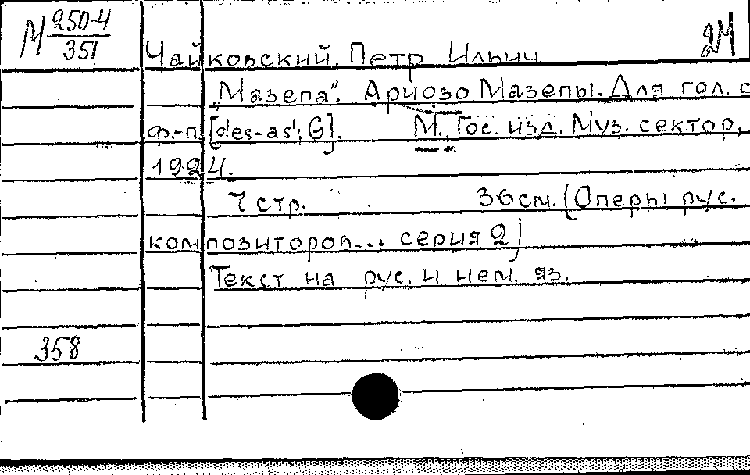 М 250-4
351
2М
Чайковский, Петр Ильич
„Мазепа“. Ариозо Мазепы. Для гол. с
ф-п. [des-as¹; G]. М., Гос. изд. Муз. сектор,
1924.
7 стр. 36 см. (Оперы рус.
композиторов... серия 2)
Текст на рус. и нем. яз.
358